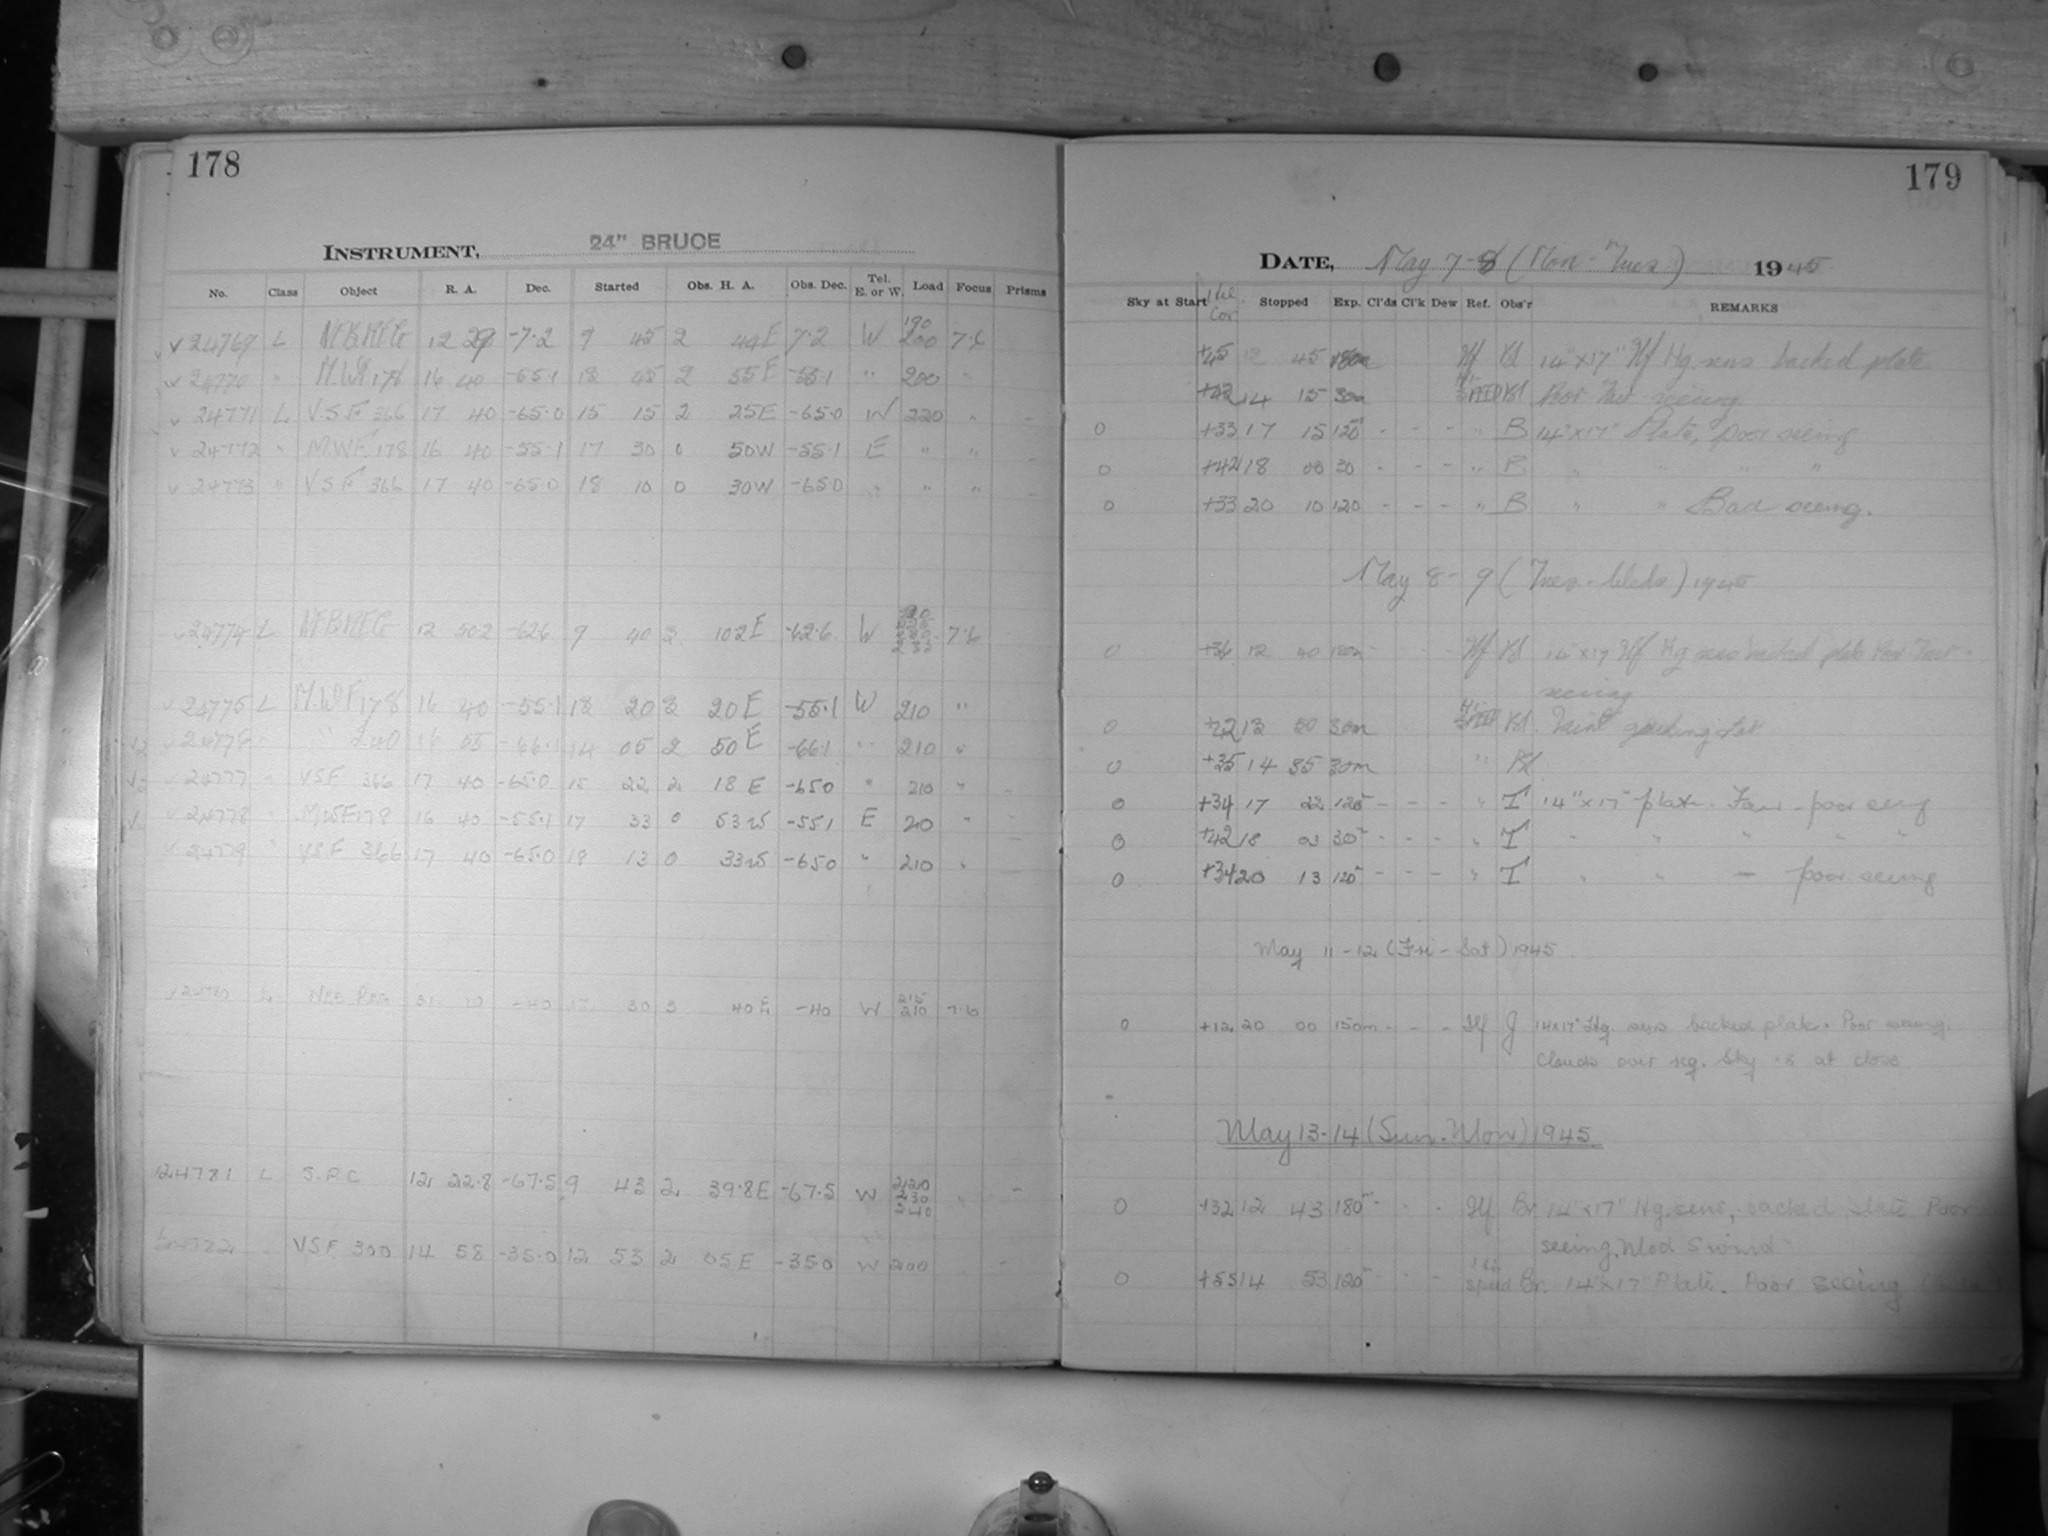 178
INSTRUMENT, 24" BRUCE
No. Class Object R. A. Dec. Started Obs. H. A. Obs. Dec. Tel. E. or W. Load Focus Prisms
24769 L 12 29 -7.2 9 45 2 44E 7.2 W 190 200 7.6
24770 " M.W.F. 178 16 40 -55.1 13 45 2 35E -55.1 " 200 "
24771 L V.S.F. 366 17 40 -65.0 15 15 2 25E -65.0 W 220 "
24772 " M.W.F. 178 16 40 -55.1 17 30 0 50W -55.1 E " "
24773 " V.S.F. 366 17 40 -65.0 18 10 0 30W -65.0 " " "
24774 L 12 50.2 -62.6 9 40 3 10.2E -62.6 W 7.6
24775 L M.W.F. 178 16 40 -55.1 13 20 3 20E -55.1 W 210 "
24776 " " 240 16 55 -66.1 14 05 2 50E -66.1 " 210 "
24777 " V.S.F. 366 17 40 -65.0 15 22 2 18E -65.0 " 210 "
24778 " M.W.F. 178 16 40 -55.1 17 33 0 53W -55.1 E 20 "
24779 " V.S.F. 366 17 40 -65.0 18 13 0 33W -65.0 " 210 "
24780 L -40 17 30 3 40E -40 W 215 210 7.6
24781 L S.P.C 12 22.8 -67.5 9 43 2 39.8E -67.5 W 220 230 240 " -
V.S.F. 300 14 58 -35.0 12 53 2 05E -35.0 W 200 -
179
DATE, May 7-8 (Mon - Tues) 1945
Sky at Start Stopped Exp. Cl'ds Cl'k Dew Ref. Obs'r REMARKS
+45 12 45 180m Hf 14" x 17" Hf Hg. sens backed plate
+42 14 15 30m Hi SPEED Poor seeing.
0 +33 17 15 120m - - - " B 14" x 17" Plate, poor seeing
0 +42 18 00 30 - - - " B " " " "
0 +33 20 10 120 - - - " B " " Bad seeing.
May 8 - 9 (Tues - Weds) 1945
0 +36 12 40 180m - - - Hf 14" x 17" Hf Hg sens backed plate
seeing
0 +42 13 50 30m Hi SPEED Faint guiding star
0 +35 14 35 30m "
0 +34 17 22 120 - - - " T 14" x 17" plate. Fair - poor seeing
0 +42 18 03 30 - - - " T " " " " "
0 +34 20 13 120 - - - " T " " - poor seeing
May 11 - 12 (Fri - Sat) 1945
0 +12 20 00 150m - - - Hf J 14x17" Hg. sens backed plate. Poor seeing.
Clouds over reg. Sky .3 at close
May 13-14 (Sun. - Mon) 1945
0 +32 12 43 180m - - - Hf Br 14" x 17" Hg. sens, backed plate Poor
seeing. Mod S wind
0 +55 14 53 120m - - - Hi speed Br. 14" x 17" Plate. Poor seeing